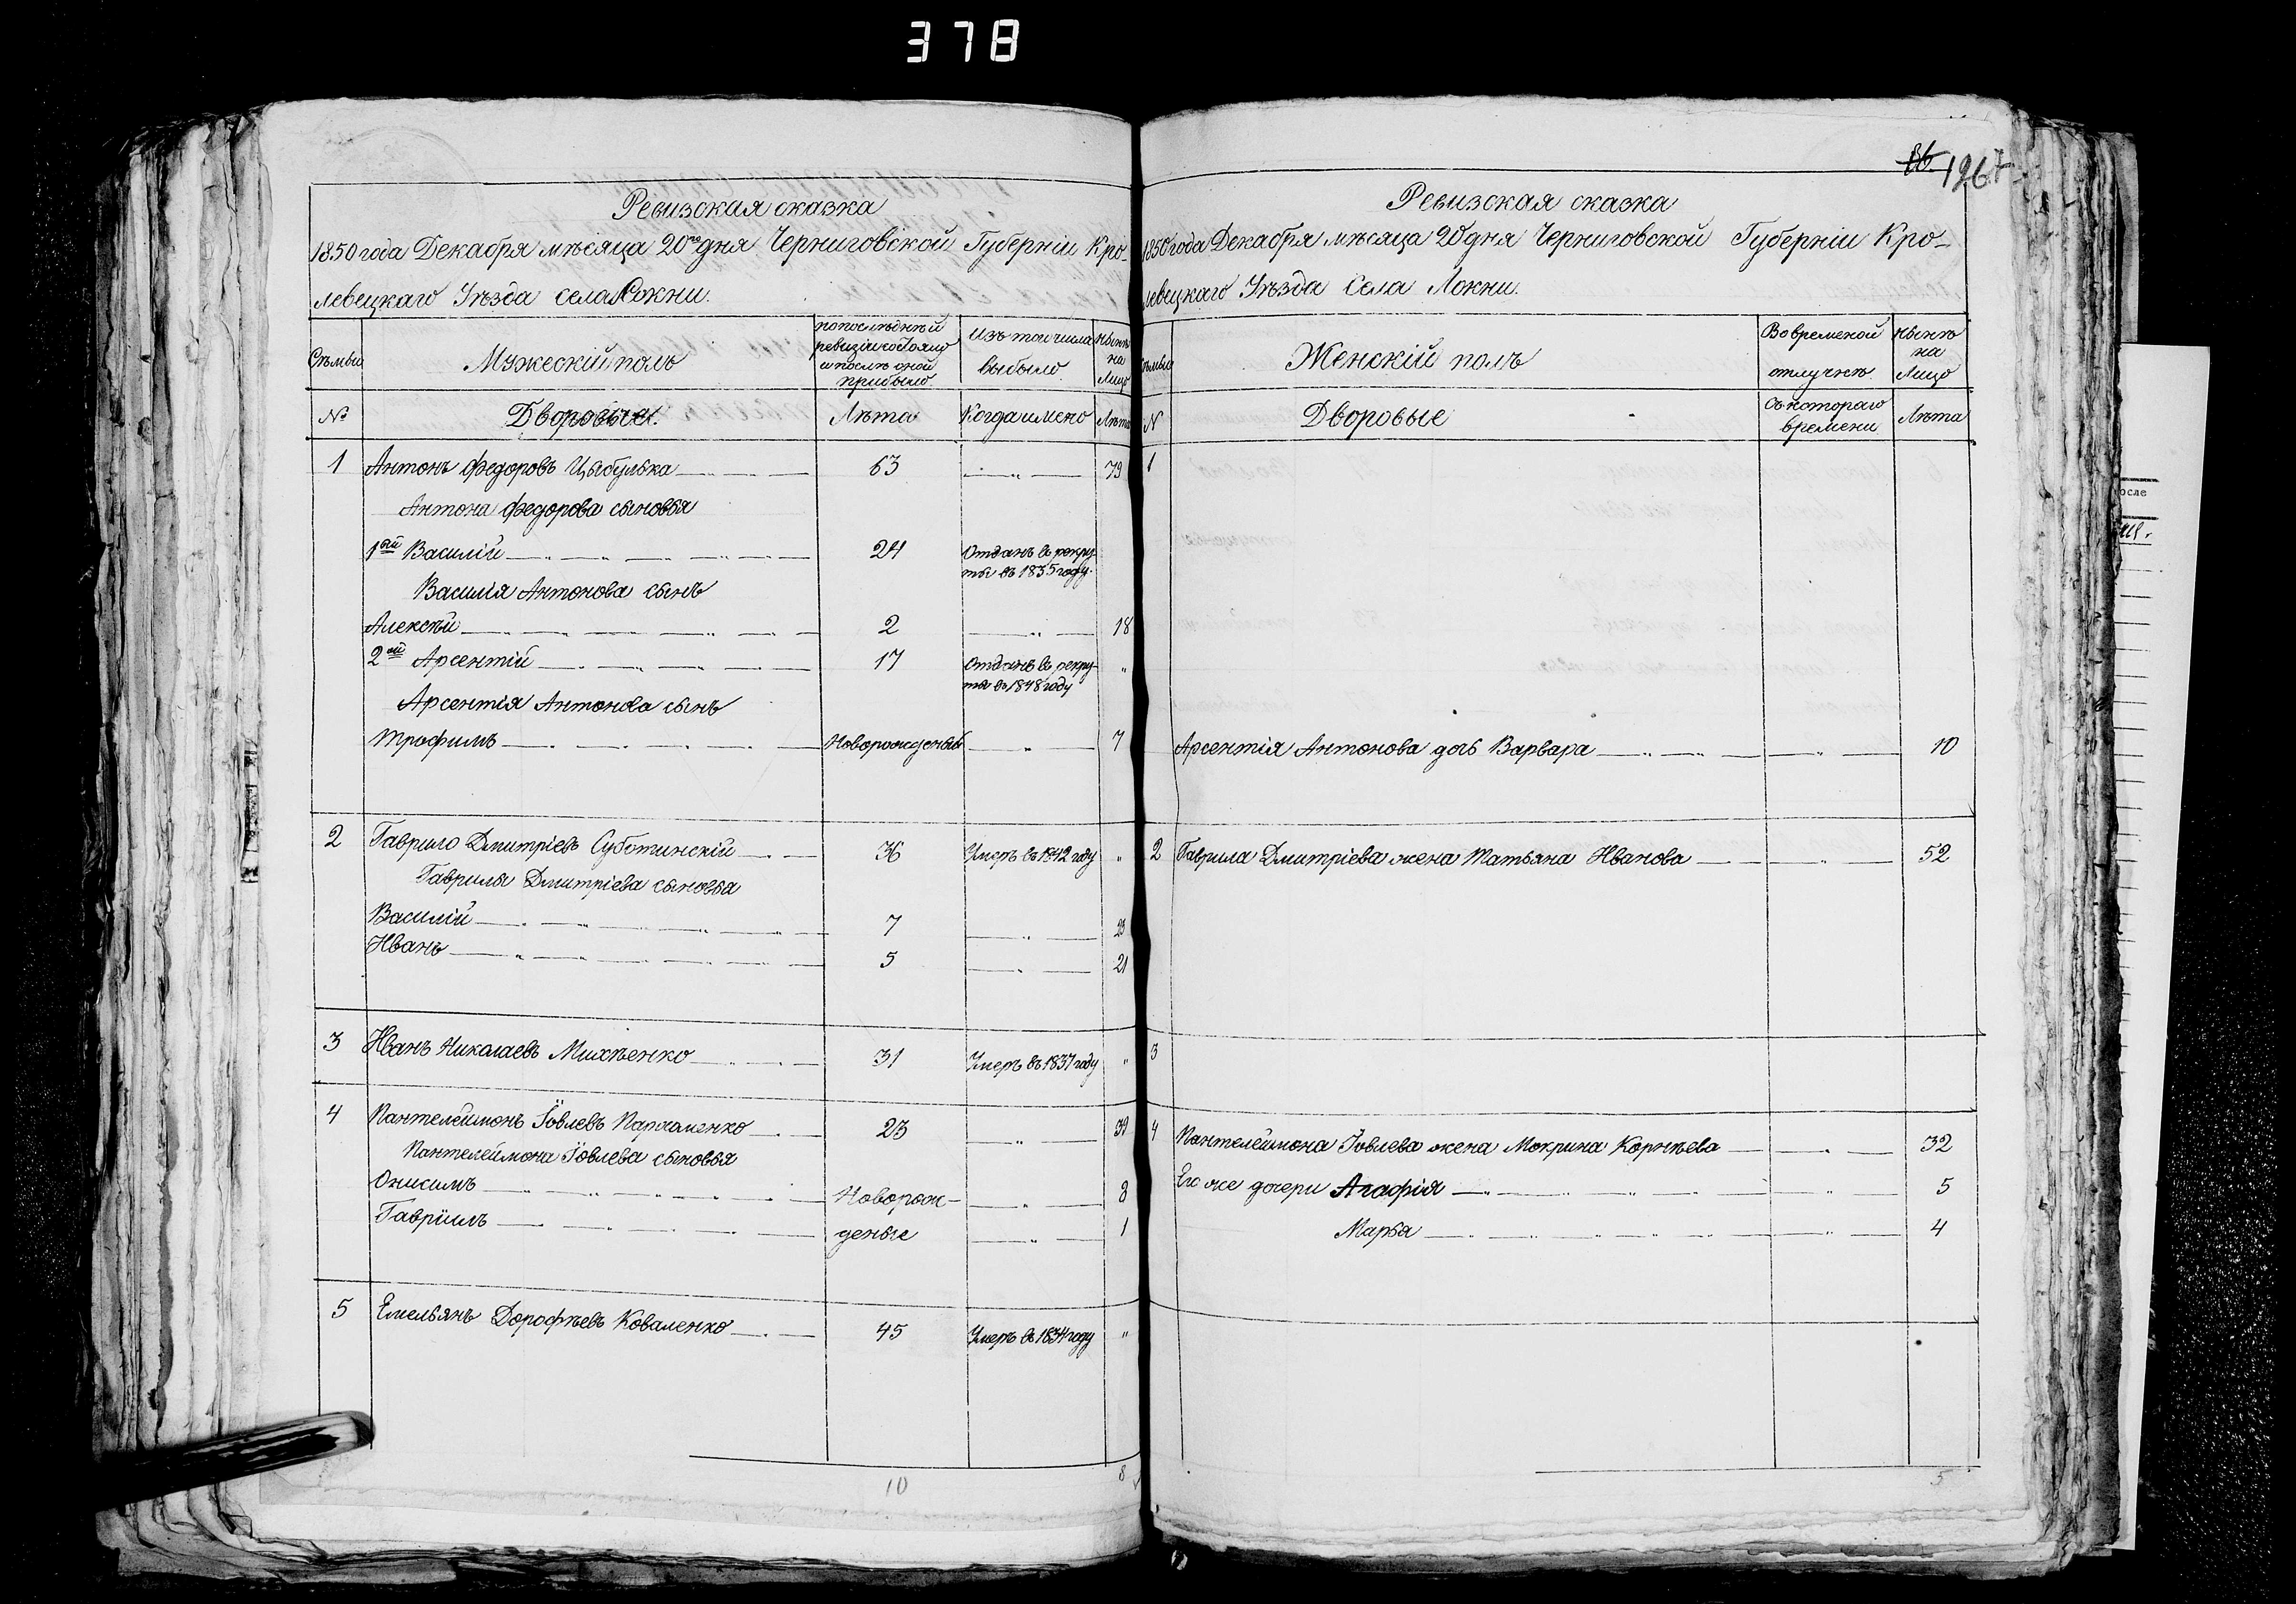 378
Ревизская сказка
1850 года Декабря мѣсяца 20го дня Черниговской Губерніи Кро-
левецкаго Уѣзда села Локни.
Сѣмьи
Мужескій полъ
по послѣдней ревизіи состояло и послѣ оной прибыло
Изъ того числа выбыло
Нынѣ на Лицо
№
Дворовые.
Лѣта
Когда имено
Лѣта
1 Антонъ Федоровъ Цыбулька 63 " 79
Антона Федорова сыновья
1ый Василій 24 Отданъ въ рекру-
ты въ 1835 году.
Василія Антонова сынъ
Алексѣй 2 " 18
2ой Арсентій 17 Отданъ въ рекру- "
ты въ 1848 году
Арсентія Антонова сынъ
Трофимъ Новорожденый " 7
2 Гаврило Дмитріевъ Суботинскій 36 Умеръ въ 1842 году "
Гаврилы Дмитріева сыновья
Василій 7 " 23
Иванъ 5 " 21
3 Иванъ Николаевъ Михѣенко 31 Умеръ въ 1837 году "
4 Пантелеймонъ Іовлевъ Пархоменко 23 " 39
Пантелеймона Іовлева сыновья
Онисимъ Новорож- " 8
Гавріилъ деные " 1
5 Емельянъ Дорофѣевъ Коваленко 45 Умеръ въ 1834 году "
10 8
1967
Ревизская сказка
1850 года Декабря мѣсяца 20 дня Черниговской Губерніи Кро-
левецкаго Уѣзда Села Локни.
Сѣмьи
Женскій полъ
Во временой отлучкѣ
Нынѣ на Лицо
N
Дворовые
Съ котораго времени
Лѣта
1
Арсентія Антонова дочь Варвара " 10
2 Гаврила Дмитріева жена Татьяна Иванова " 52
3
4 Пантелеймона Іовлева жена Мокрина Корнѣева " 32
Его же дочери Агафія " 5
Марья " 4
5
осле